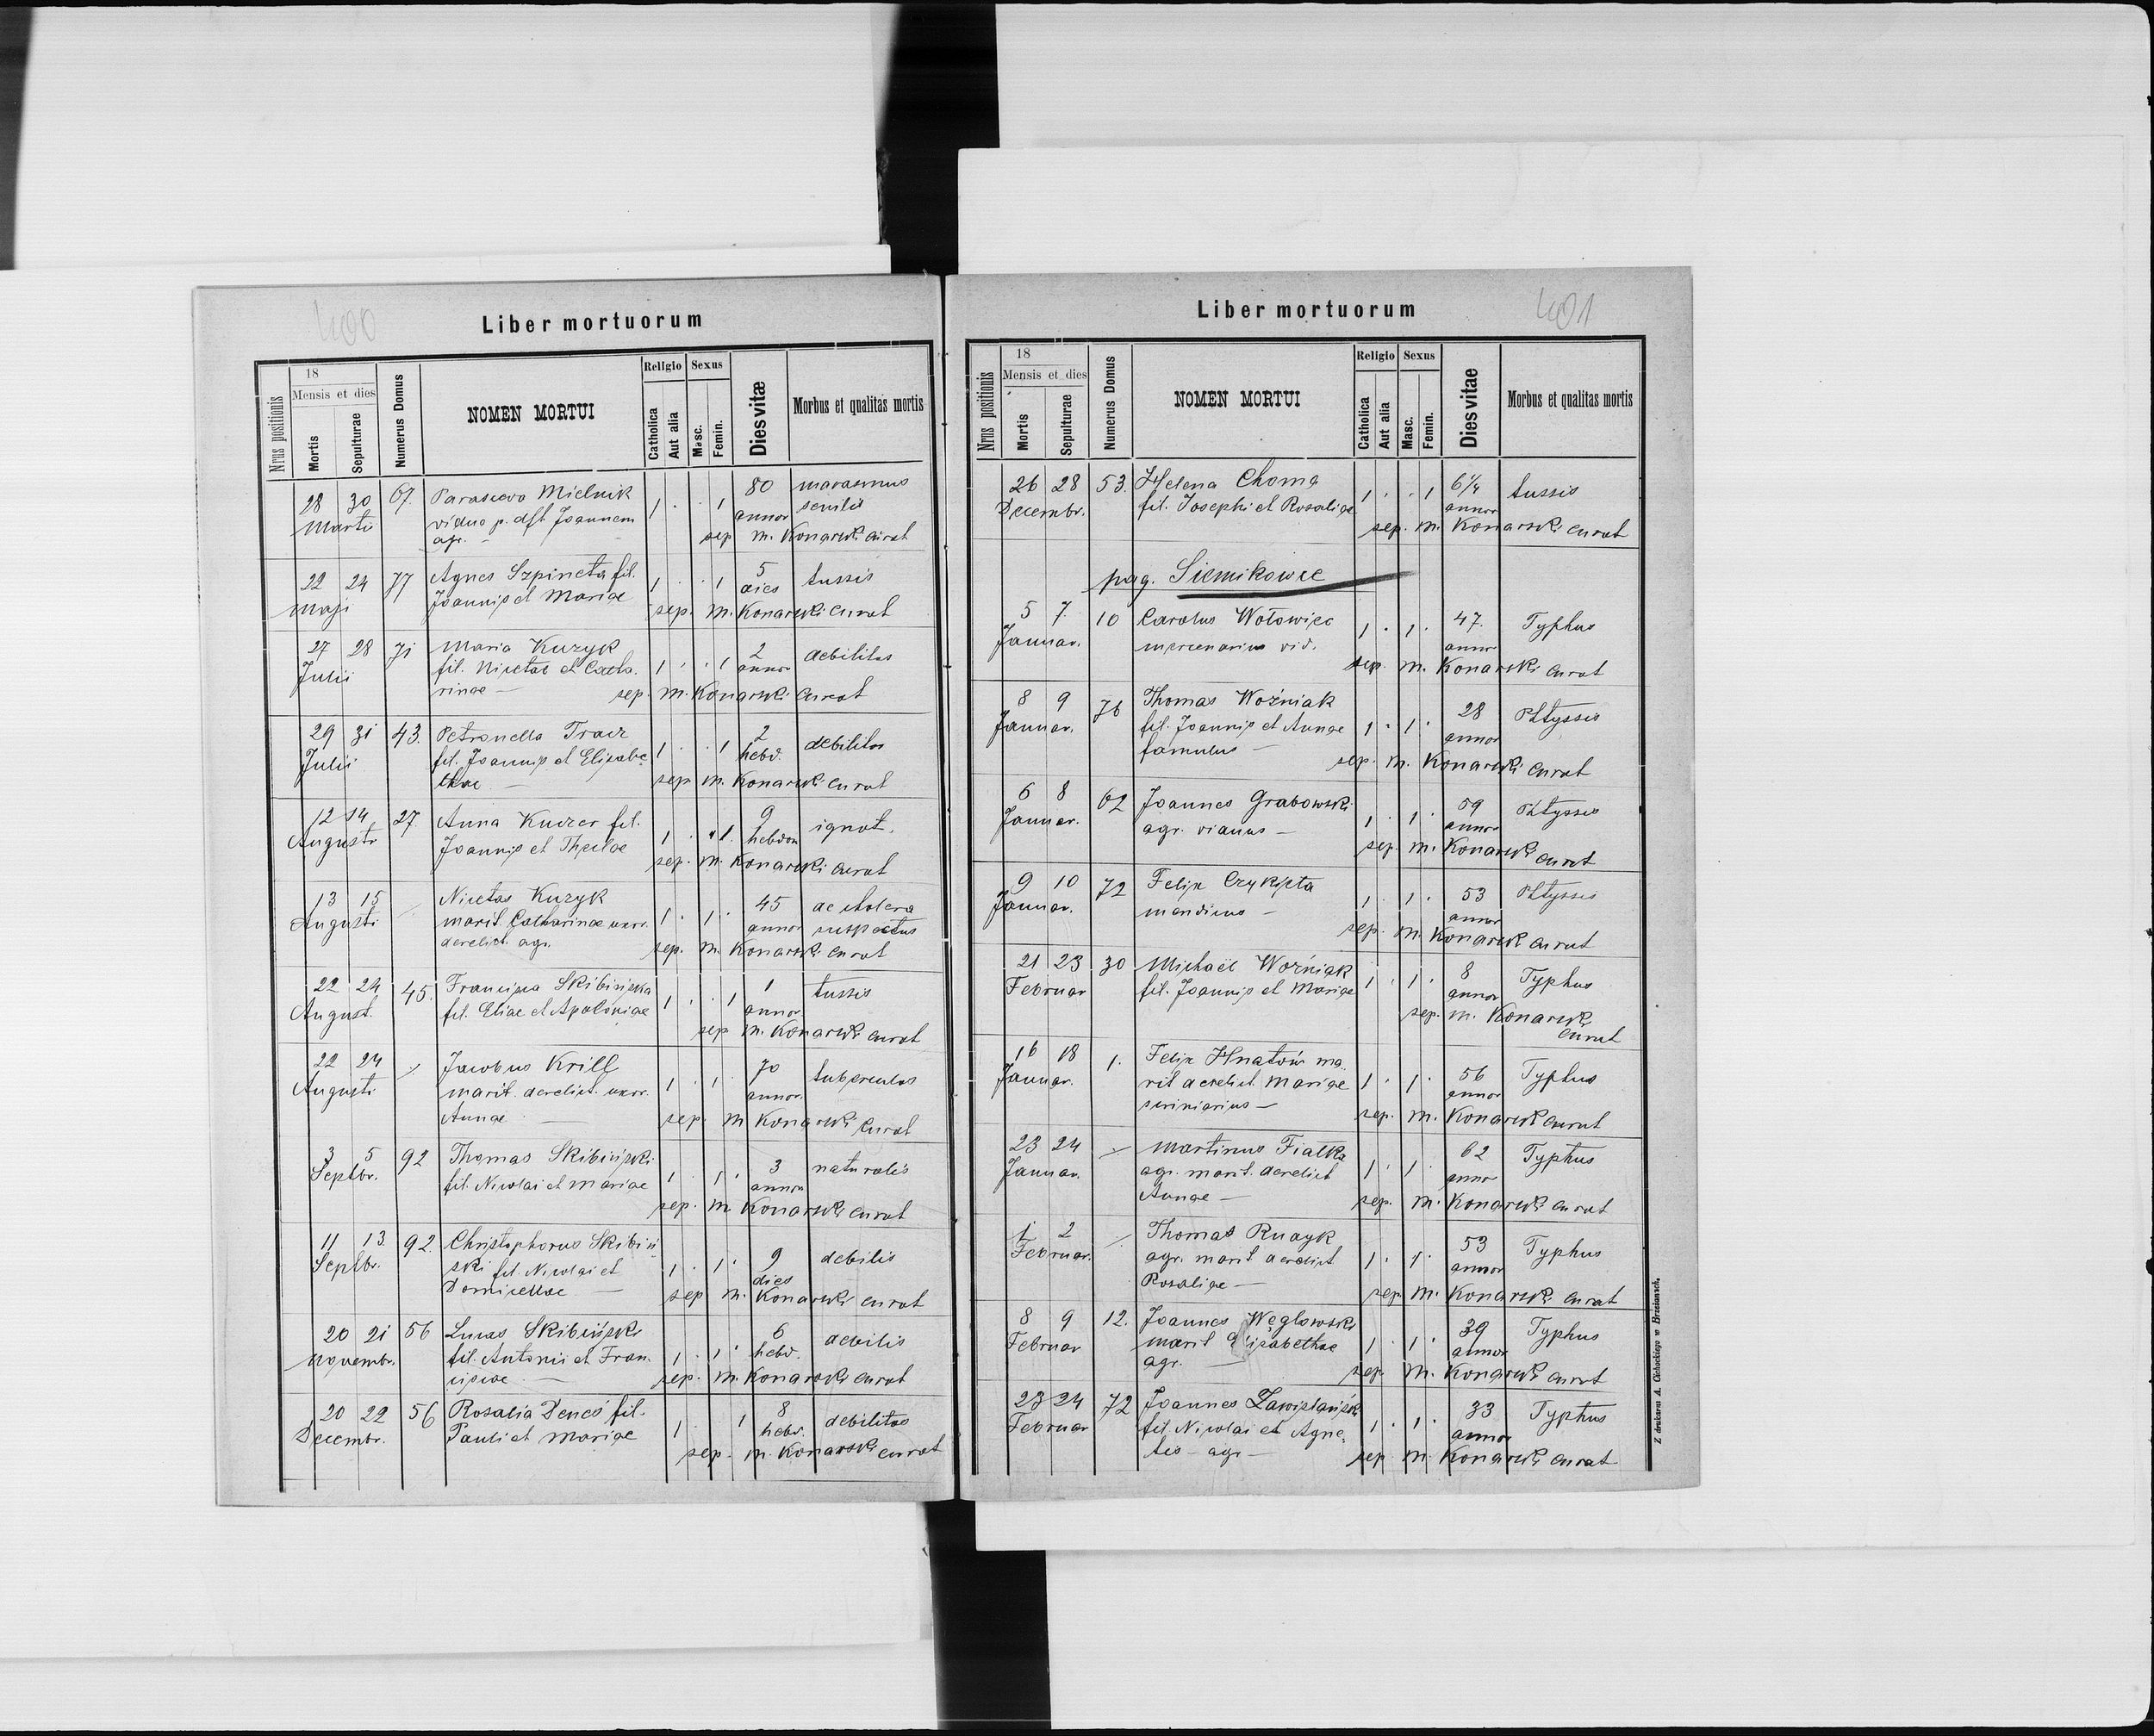 400
Liber mortuorum
Nrus positionis
18
Mensis et dies
Mortis
Sepulturae
Numerus Domus
NOMEN MORTUI
Religio
Catholica
Aut alia
Sexus
Masc.
Femin.
Dies vitæ
Morbus et qualitas mortis
28 30 67. Parasceva Mielnik 1 . . 1 80 marasmus
Martii vidua p. dft Joannem annor senilis
agr. - sep m. Konarski curat
22 24 77 Agnes Szpineta fil. 1 . . 1 5 tussis
Maji Joannis et Mariae dies
sep. m. Konarski curat
27 28 71 Maria Kuzyk 2 debilitas
Julii fil. Nicetae et Catha- 1 . . 1 annor
rinae - sep. m. Konarski curat
29 31 43. Petronella Tracz 2 debilitas
Julii fil. Joannis et Elisabe- 1 . . 1 hebd.
thae - sep m. Konarski curat
12 14 27. Anna fil. 9 ignot.
Augusti Joannis et Theclae 1 . 1 hebdom
sep. m. Konarski curat
13 15 Nicetas Kuzyk 45 de cholera
Augusti marit. Catharinae uxor. 1 . 1 . annor suspectus
derelict. agr. sep. m. Konarski curat
22 24 45. Francisca Skibińska 1 . . 1 1 tussis
August. fil. Eliae et Apoloniae annor.
sep m. Konarski curat
22 24 Jacobus Krill 70
Augusti marit. derelict. uxor. 1 . 1 . annor. tuberculos
Annae - sep. m Konarski curat
3 5 92 Thomas Skibiński 3 naturalis
Septbr. fil. Nicolai et Mariae 1 . 1 . annor
sep. m Konarski curat
11 13. 92. Christophorus Skibiń- 9 debilis
Septbr. ski fil. Nicolai et 1 . 1 . dies
Domicellae - sep m. Konarski curat
20 21 56 Lucas Skibiński 6 debilis
Novembr. fil. Antonii et Fran- 1 . 1 . hebd.
ciscae - sep. m. Konarski curat
20 22 56 Rosalia Deneś fil. 1 . 1 8 debilitas
Decembr. Pauli et Mariae hebd.
sep. m. Konarski curat
401
Liber mortuorum
Nrus positionis
18
Mensis et dies
Mortis
Sepulturae
Numerus Domus
NOMEN MORTUI
Religio
Catholica
Aut alia
Sexus
Masc.
Femin.
Dies vitae
Morbus et qualitas mortis
26 28 53. Helena Choma 1 . . 1 6 1/4 tussis
Decembr. fil. Josephi et Rosaliae annor
sep. m. Konarski curat
pag. Siemikowce
5 7. 10 Carolus Wołowiec 1 . 1 . 47. Typhus
Januar. mercenarius vid. annor
sep. m. Konarski curat
8 9 76 Thomas Woźniak 28 Phtyssis
Januar. fil. Joannis et Annae 1 . 1 . annor
famulus - sep. m. Konarski curat
6 8 62 Joannes Grabowski 59 Phtyssis
Januar. agr. viduus - 1 . 1 . annor
sep. m. Konarski curat
9 10 72 Felix Czykięta 53 Phtyssis
Januar. mendicus - 1 . 1 . annor
sep. m. Konarsk curat
21 23 30 Michaël Woźniak 1 . 1 . 8 Typhus
Februar fil. Joannis et Mariae annor
sep. m. Konarsk
curat
16 18 1. Felix Hnatów ma- 56 Typhus
Januar. rit derelict Mariae 1 . 1 . annor
scriniarius - sep. m. Konarsk curat
23 24 Martinus Fialka 62 Typhus
Januar. agr. marit. derelict 1 . 1 . annor
Annae - sep. m. Konarski curat
1 2 Thomas 53 Typhus
Februar. agr. marit derelict 1 . 1 . annor
Rosaliae - sep. m. Konarski curat
8 9 12. Joannes Węglowski 39 Typhus
Februar marit Elisabethae 1 . 1 . annor
agr. - sep. m. Konarski curat
23 24 72 Joannes 33 Typhus
Februar fil. Nicolai et Agne- 1 . 1 . annor
tis - agr - sep m. Konarski curat
Z drukarni A. Cichockiego w Brzeżanach.